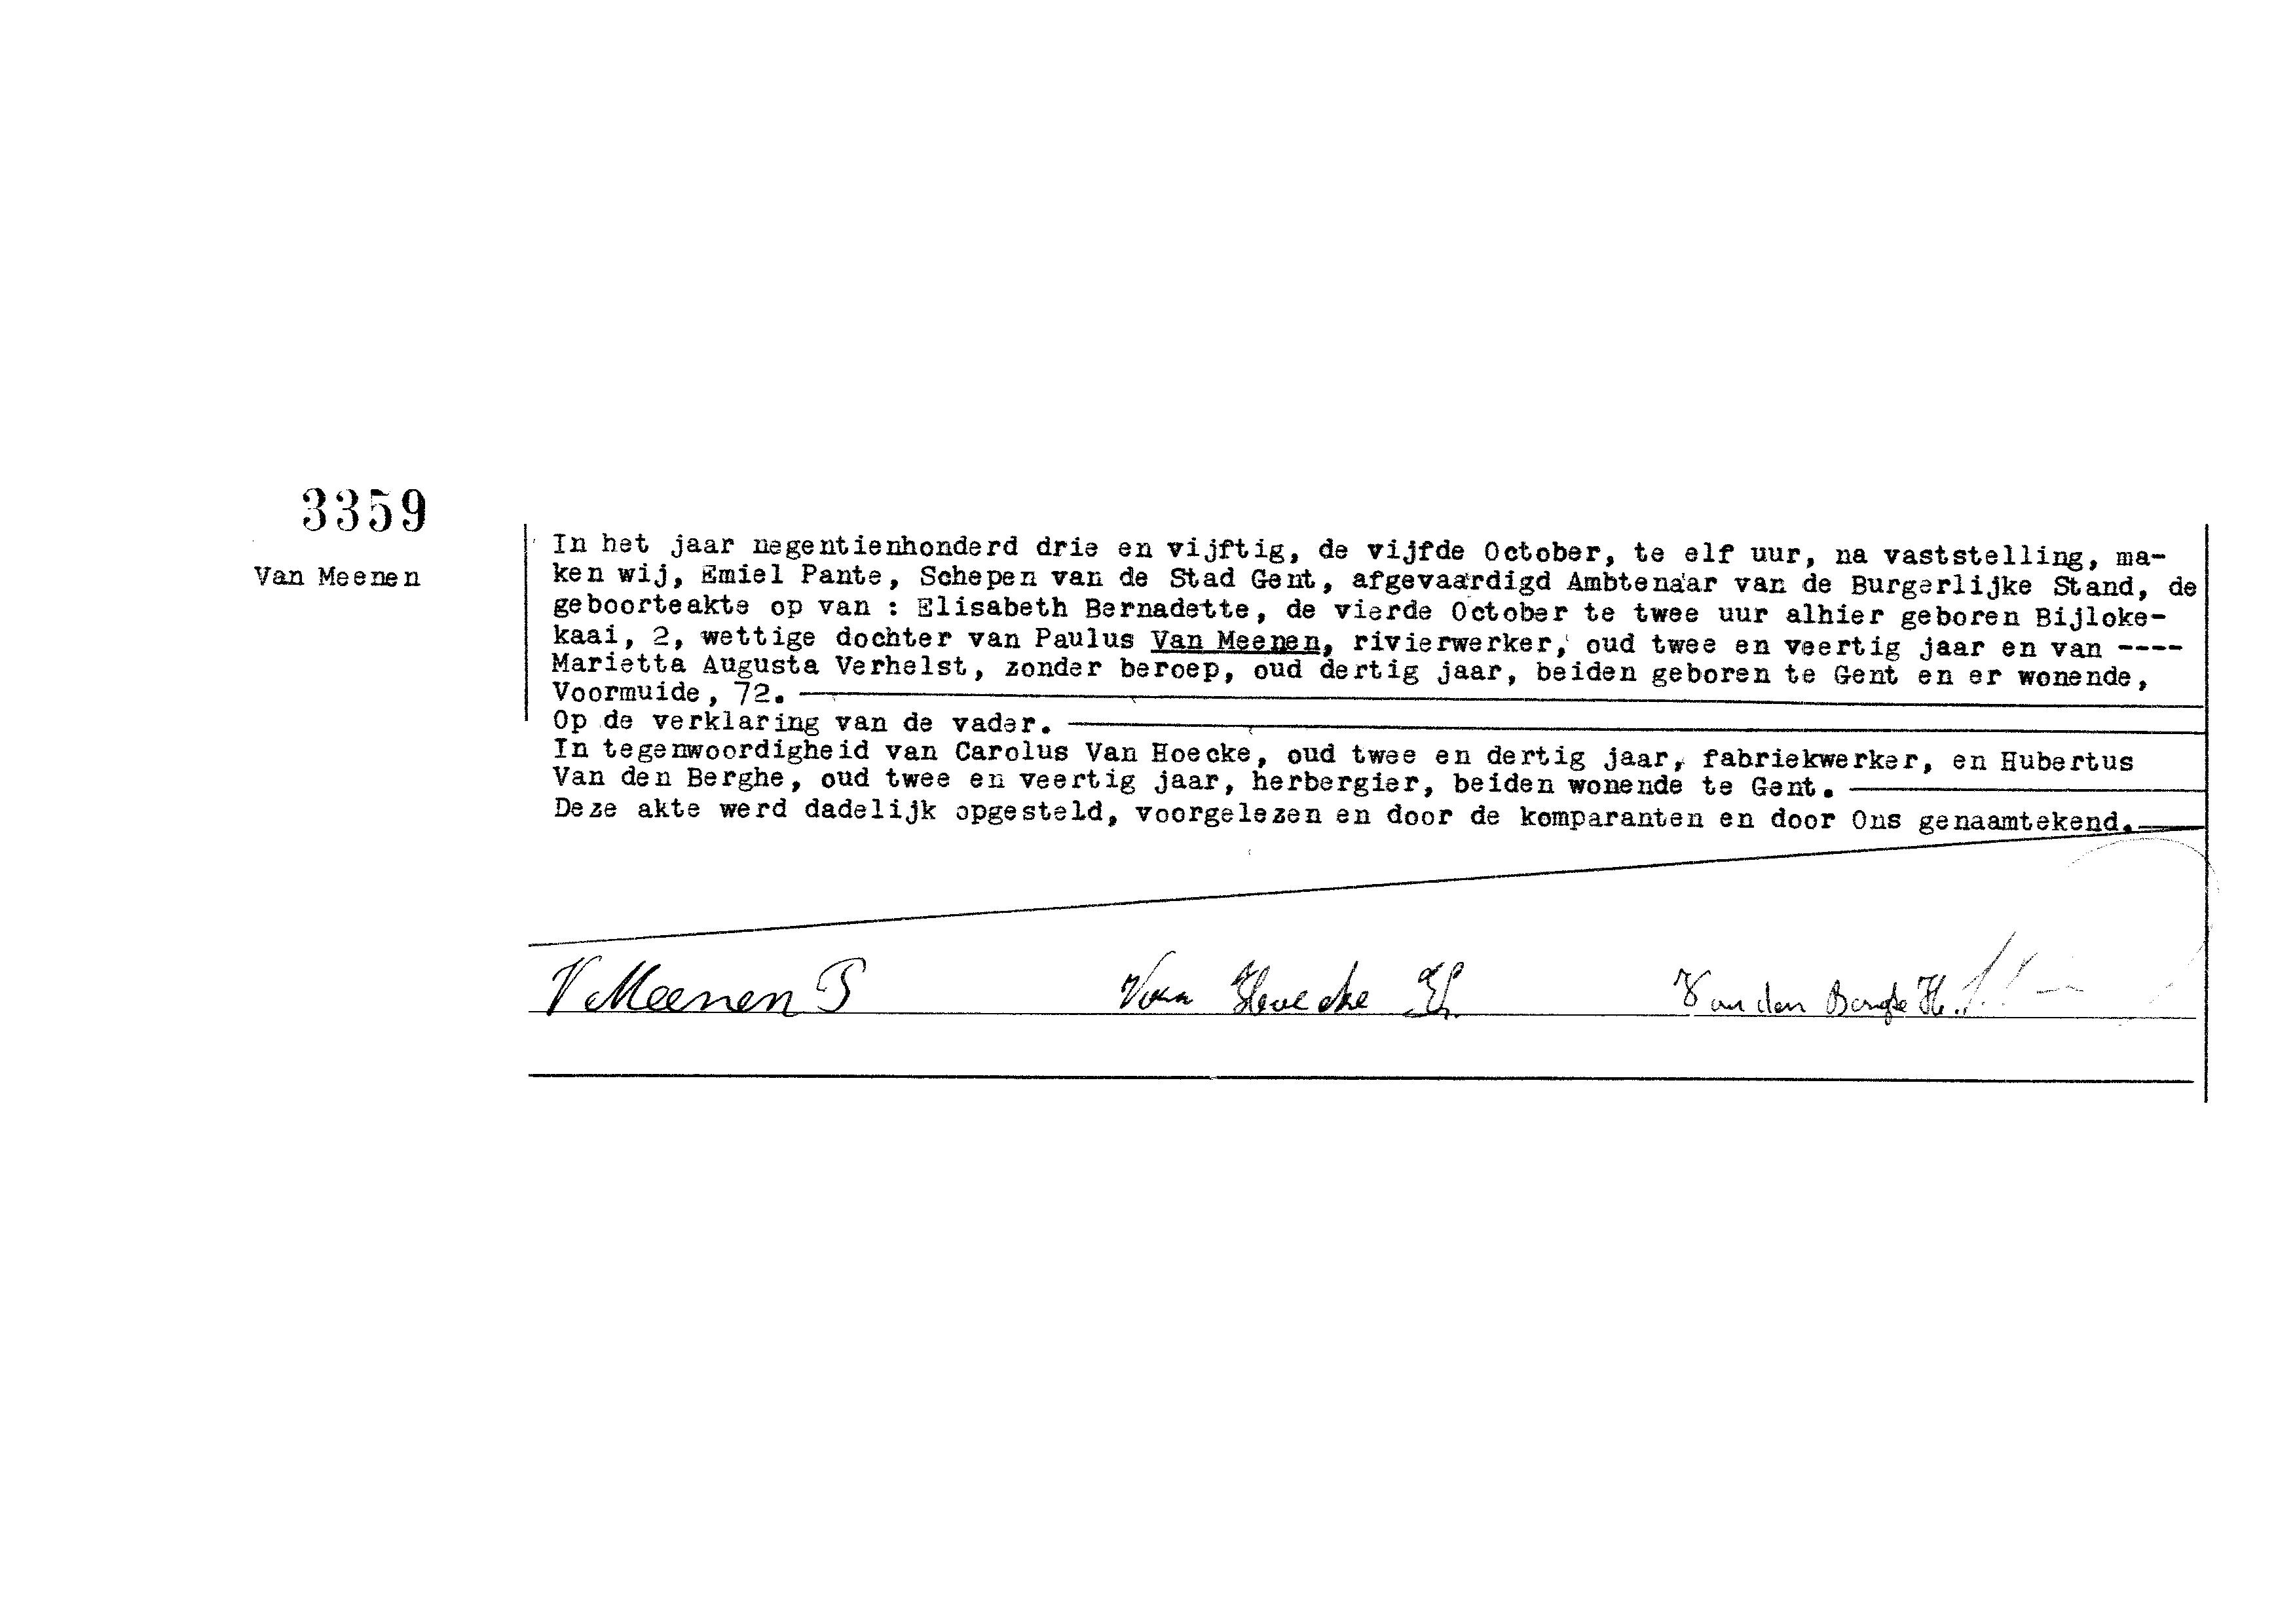 3359
Van Meenen
In het jaar negentienhonderd drie en vijftig, de vijfde October, te elf uur, na vaststelling, ma-
ken wij, Emiel Pante, Schepen van de Stad Gent, afgevaardigd Ambtenaar van de Burgerlijke Stand, de
geboorteakte op van : Elisabeth Bernadette, de vierde October te twee uur alhier geboren Bijloke-
kaai, 2, wettige dochter van Paulus Van Meenen, rivierwerker, oud twee en veertig jaar en van ----
Marietta Augusta Verhelst, zonder beroep, oud dertig jaar, beiden geboren te Gent en er wonende,
Voormuide, 72.
Op de verklaring van de vader.
In tegenwoordigheid van Carolus Van Hoecke, oud twee en dertig jaar, fabriekwerker, en Hubertus
Van den Berghe, oud twee en veertig jaar, herbergier, beiden wonende te Gent.
Deze akte werd dadelijk opgesteld, voorgelezen en door de komparanten en door Ons genaamtekend.
V Meenen P Van Hoecke Van den Berghe H.